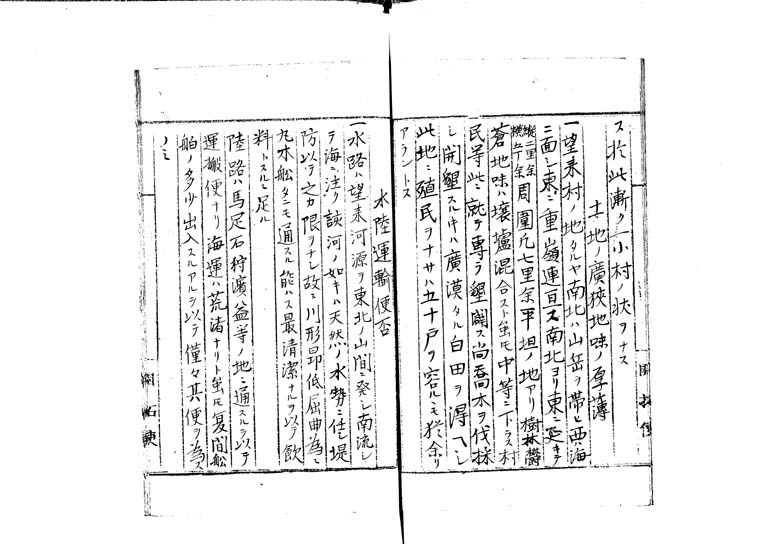 ス於此漸ク一小村ノ狀ヲナス
土地ノ廣狹地味ノ厚薄
一望来村ノ地タルヤ南北ハ山岳ヲ帯ヒ西ハ海
ニ面シ東ニ重嶺連亘ス南北ヨリ東ニ延キテ
縦二里余
横五丁余
周圍凡七里余平坦ノ地アリ樹林欝
蒼地味ハ壌壚混合スト虽モ中等ニ下ラス村
民等此ニ就テ専ラ墾闢ス尚喬木ヲ伐採
シ開墾スルキハ廣漠タル白田ヲ得ヘシ
此地ニ殖民ヲナサハ五十戸ヲ容ルヽモ猶余リ
アラントス
水陸運輸便否
一水路ハ望来河源ヲ東北ノ山間ニ発シ南流シ
テ海ニ注ク該河ノ如キハ天然ノ水勢ニ任シ堤
防以テ之カ限ヲナシ故ニ川形昂低屈曲為ニ
丸木船タニモ通スル能ハス最清潔ナルヲ以テ飲
料トスルニ足ル
陸路ハ馬足石狩濱益等ノ地ニ通スルヲ以テ
運搬便ナリ海運ハ荒渚ナリト虽モ夏間船
舶ノ多少出入スルアルヲ以テ僅々其便ヲ為ス
ノミ
開拓使